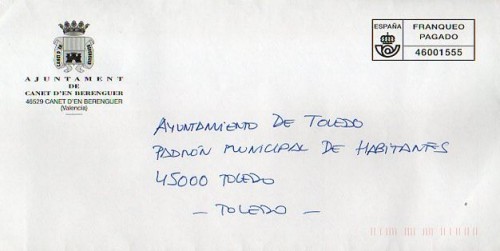 AJUNTAMENT
DE
CANET D'EN BERENGUER
46529 CANET D'EN BERENGUER
(Valencia)
ESPAÑA
FRANQUEO
PAGADO
46001555
AYUNTAMIENTO DE TOLEDO
PADRÓN MUNICIPAL DE HABITANTES
45000 TOLEDO
- TOLEDO -